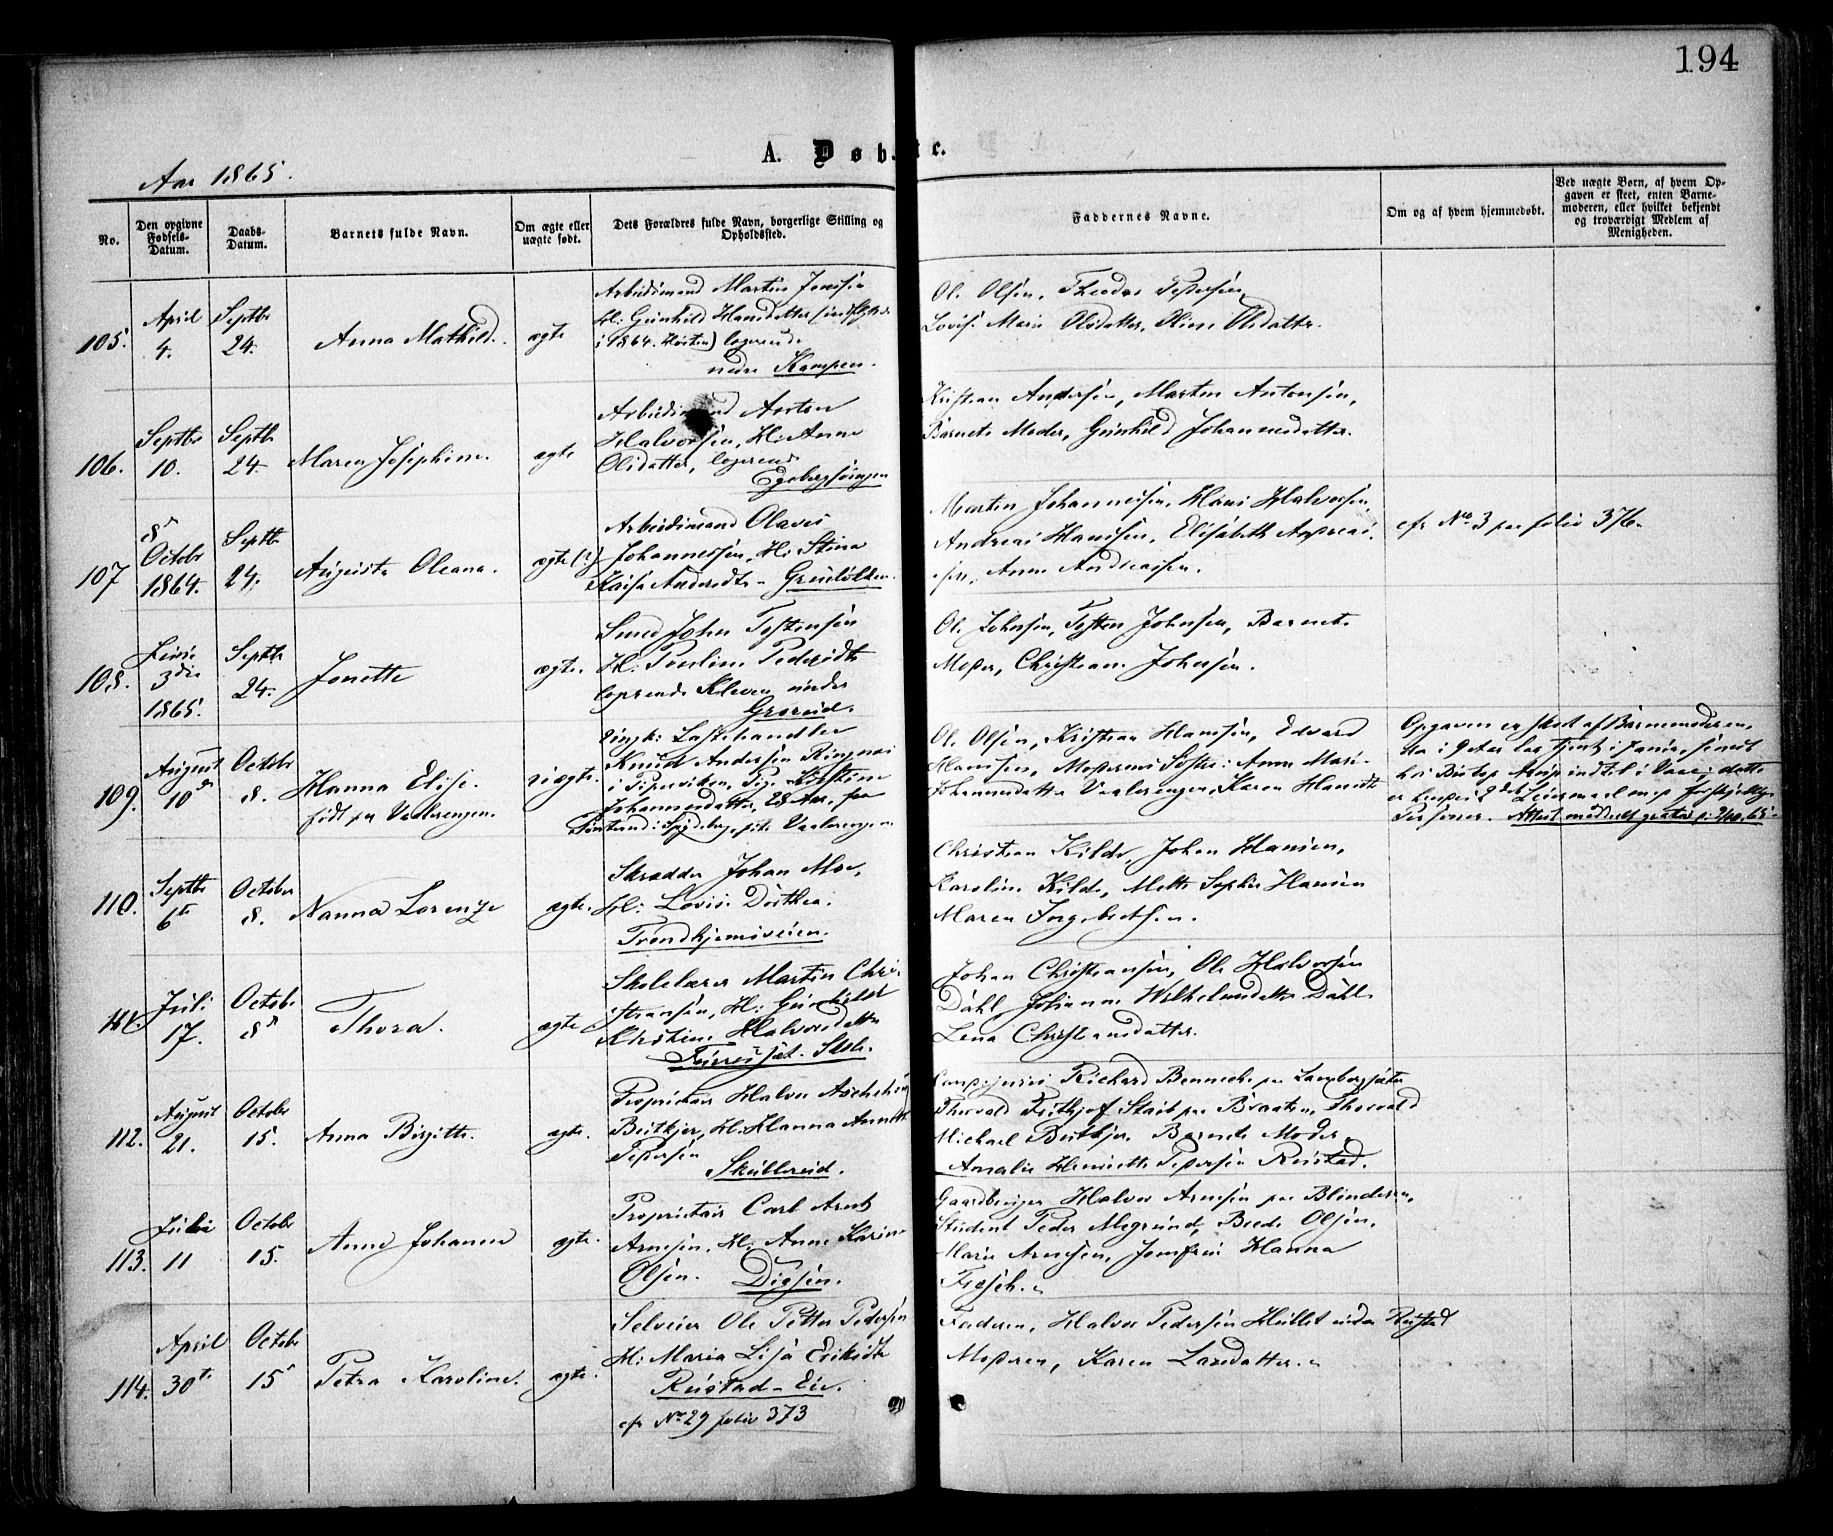 194
A. Døbte.
Aar 1865.
No.
Den opgivne Fødsels-Datum.
Daabs-Datum.
Barnets fulde Navn.
Om ægte eller uægte født.
Dets Forældres fulde Navn, borgerlige Stilling og Opholdssted.
Faddernes Navne.
Om og af hvem hjemmedøbt.
Ved uægte Børn, af hvem Opgaven er skeet, enten Barnemoderen, eller hvilket bekjendt og troværdigt Medlem af Menigheden.
105.
April 4.
Septbr 24.
Anna Mathild.
ægte
Arbeidsmand Martin Jensen
H: Gunhild Hansdatter
i 1864. Horten) logerende
nedre Kampen.
Ole Olsen, Theodor Pedersen,
Lovise Marie Olsdatter, Oline Olsdatter.
106.
Septbr 10.
Septb 24.
Maren Josephine.
ægte
Arbeidsmand Anton
Halvorsen, H: Anne
Olsdatter, logerende
Egebergsveien
Kristian Andersen, Martin Antonsen,
Barnets Moder, Gunhild Johannesdatter.
107
8de October 1864.
Septb 24.
Augusta Oleana.
ægte(?)
Arbeidsmand Olaves
Johannessen, H: Stina
Kaisa Andersdtr - Grønlolkken
Martin Johannessen, Hans Halvorsen,
Andreas Hansen, Elisabeth Andreas-
sen, Anne Andreassen.
cfr No 3 paa folio 376.
108.
Juni 3die 1865.
Septb 24.
Jonette
ægte.
Smed John Tostensen
H: Pauline Pedersdtr
logerende Kleven under
Grorud.
Ole Johnsen, Tosten Johnsen, Barnets
Moder, Christiane Johnsen.
109.
August 10de
Octobr 8.
Hanna Elise.
født paa Vaalerengen.
uægte.
Ungk: Lastehandler
Knud Andersen Ringnæs
i Pipervigen, Pige Kirstine
Johannesdatter, 28 Aar, fra
i Spydeberg, Vaalerengen
Ole Olsen, Kristian Hansen, Edvard
Hansen, Moderens Søster: Anne Marie
Johannesdatter Vaalerengen, Karen Hansdtr
Opgaven er skeet af Barnemoderen,
er hendes 2det Leiermaal med forskjellige
Personer. Attest meddeelt gratis
110.
Septbr 6te
October 8.
Nanna Lorenze
ægte.
Skrædder Johan Moe,
H: Lovise Dorthea.
Trondhjemsveien.
Christian Kilde, Johan Hansen,
Karoline Kilde, Mette Sophie Hansen
Maren Ingebretsen.
111.
Juli 17.
Octobr 8de
Thora.
ægte
Skolelærer Martin Chri-
stiansen, H: Gunhild
Kirstine Halvorsdatter
Furusæt Skole.
Johan Christiansen, Ole Halvorsen
Dahl, Johanne Wilhelmsdatter Dahl
Lena Christiansdatter.
112.
August 21.
October 15.
Anna Birgitte.
ægte.
Proprietair Halvor
Butkjer, H: Hanna Annette
Petersen
Skullerud.
Richard Bennech paa Lambergsæter
Thorvald Frithjof Stub paa Braaten, Thorvald
Michael Butkjer, Barnets Moder,
Amalie Henriette Petersen Rustad.
113.
Juli 11
Octobr 15.
Anne Johanne
ægte.
Proprietair Carl Arnt
Arnesen, H: Anne Karine
Olsen. Disen.
Gaardbruger Halvor Arnesen paa Blindern,
Student Peder Olsen,
Marie Arnesen, Jomfru Hanna
114.
April 30te
Octobr 15
Petra Karoline.
ægte.
Selveier Ole Petter Pedersen
H: Maria Lisa Eriksdtr
Rustad-Eie.
cfr No 29 folio 373
Faderen, Halvor Pedersen under Rustad
Moderen, Karen Larsdatter.